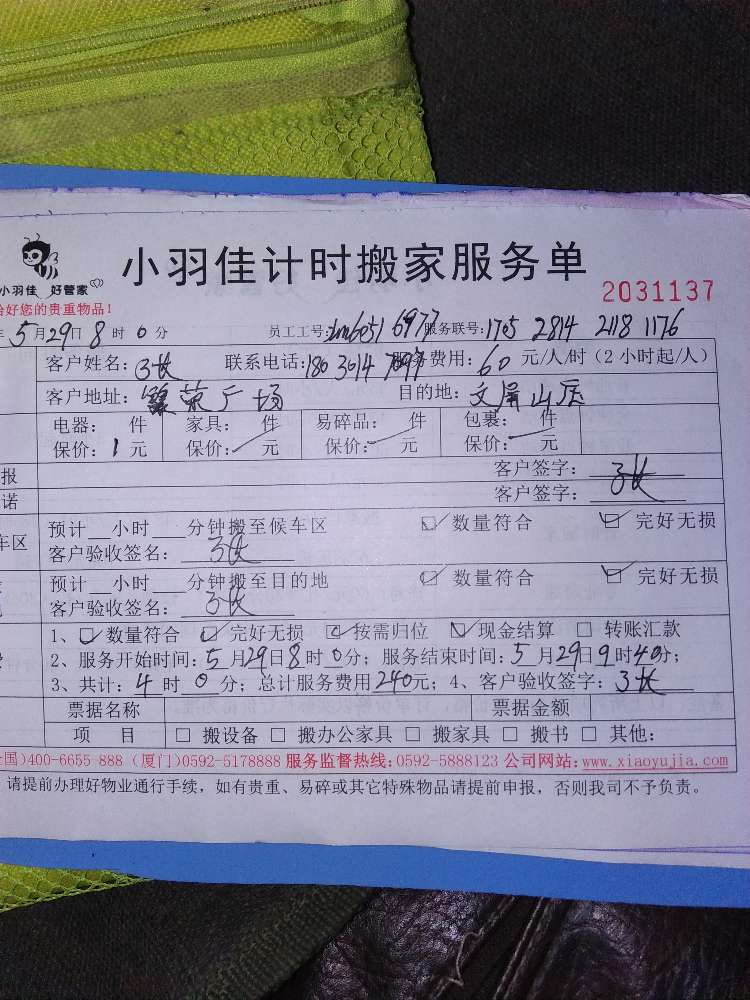 小羽佳计时搬家服务单
小羽佳 好管家
2031137
好您的贵重物品！
年5月29日8时0分 员工工号: 6977 服务联号:1705 2814 2118 1176
客户姓名: 联系电话:180 3014 服务费用:60元/人/时（2小时起/人）
客户地址:繁荣广场 目的地:文屏山庄
电器: 件 家具: 件 易碎品: 件 包裹: 件
保价:1元 保价: 元 保价: 元 保价: 元
报 客户签字:
诺 客户签字:
车区 预计__小时___分钟搬至候车区 ☑数量符合 ☑完好无损
客户验收签名:
预计__小时___分钟搬至目的地 ☑数量符合 ☑完好无损
客户验收签名:
1、☑数量符合 ☑完好无损 ☑按需归位 ☑现金结算 □转账汇款
2、服务开始时间:5月29日8时0分；服务结束时间:5月29日9时40分；
3、共计:4时0分；总计服务费用240元；4、客户验收签字:
票据名称 票据金额
项 目 □搬设备 □搬办公家具 □搬家具 □搬书 □其他:
国)400-6655-888（厦门)0592-5178888 服务监督热线:0592-5888123 公司网站:www.xiaoyujia.com
请提前办理好物业通行手续，如有贵重、易碎或其它特殊物品请提前申报，否则我司不予负责。